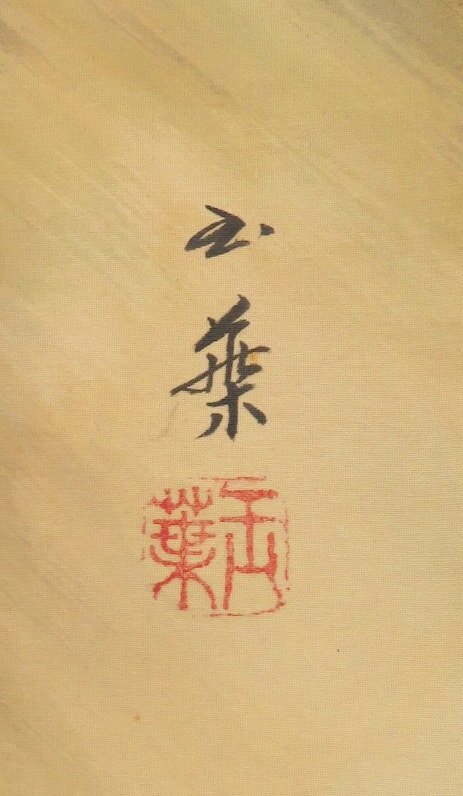 玉葉
玉葉